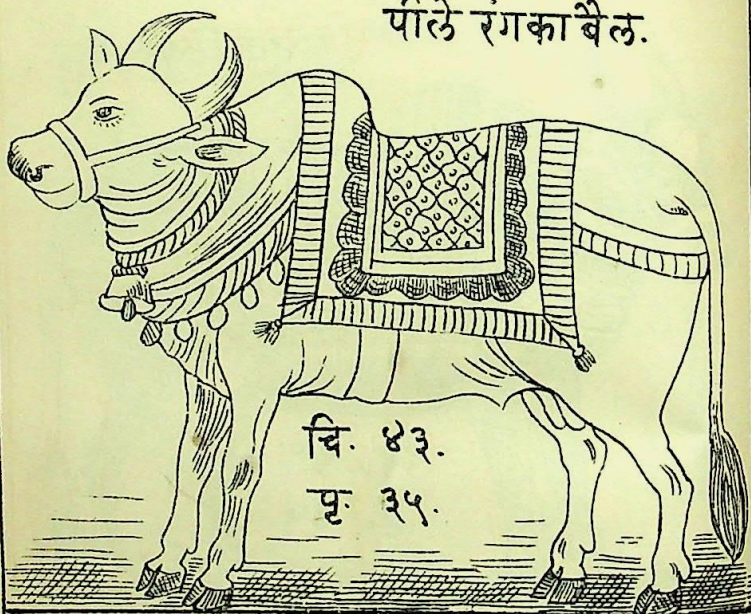 पीले रंगका बैल.
चि. ४३.
पृ. ३५.